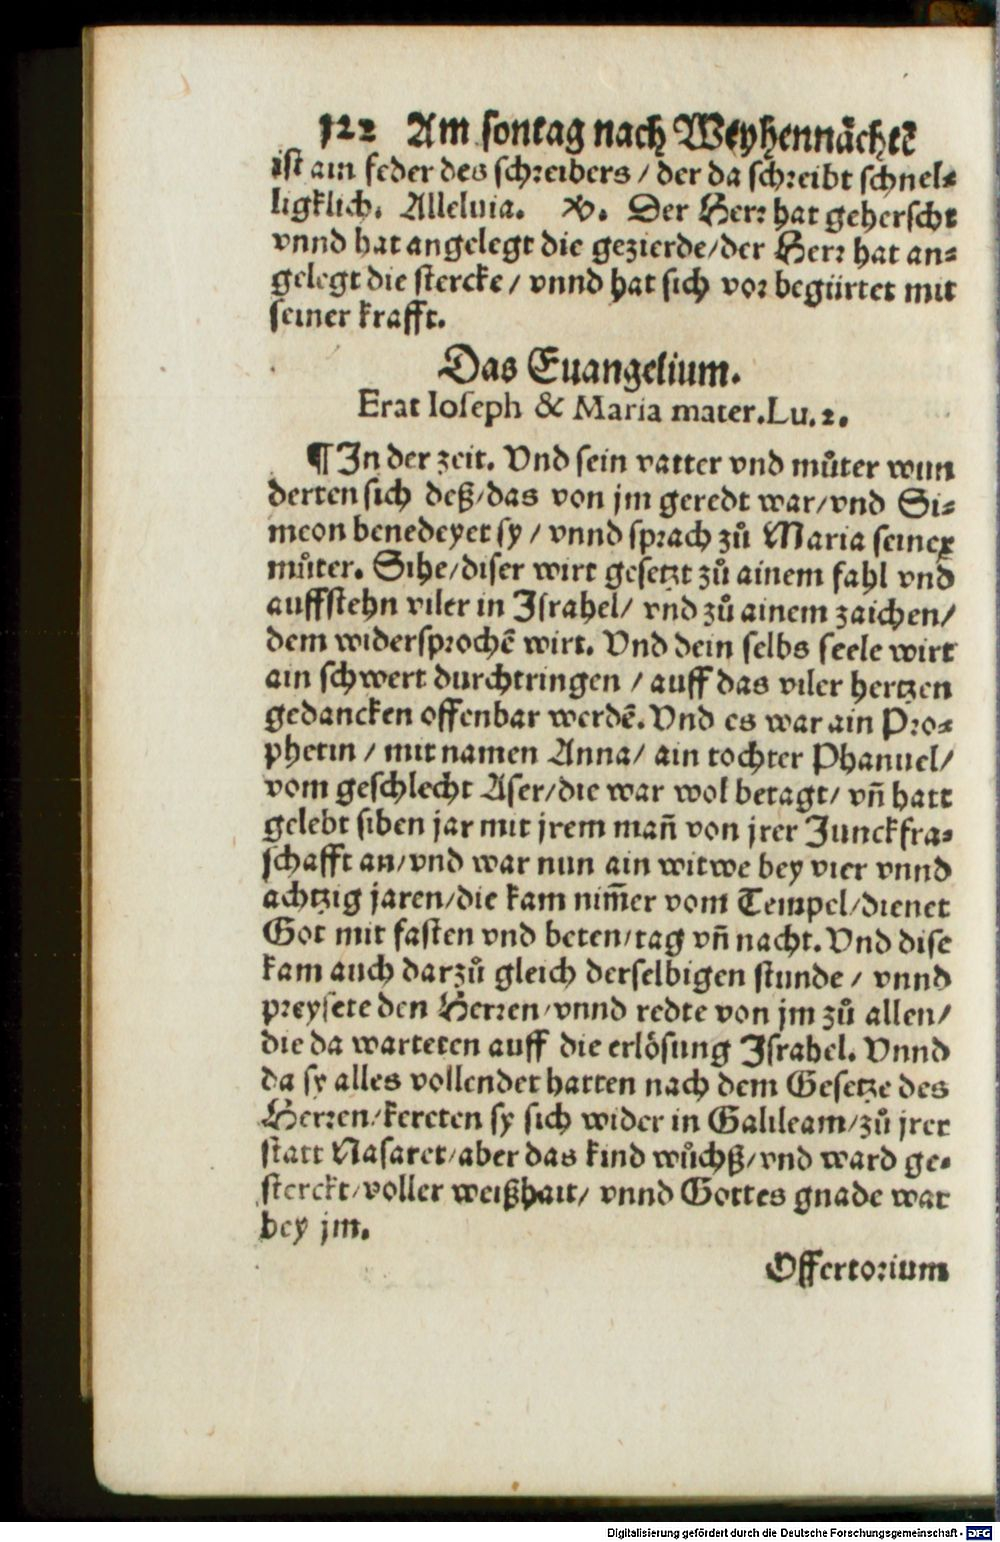 122 Am sontag nach Weyhennåchtẽ
ist ain feder des schreibers / der da schreibt schnel⸗
ligklich. Alleluia. V. Der Herr hat geherscht
vnnd hat angelegt die gezierde/der Herr hat an⸗
gelegt die stercke / vnnd hat sich vor begürtet mit
seiner krafft.
Das Euangelium.
Erat Ioseph & Maria mater.Lu.2.
¶ In der zeit. Vnd sein vatter vnd můter wun
derten sich deß/das von jm geredt war/vnd Si⸗
meon benedeyet sy / vnnd sprach zů Maria seiner
můter. Sihe/diser wirt gesetzt zů ainem fahl vnd
auffstehn viler in Israhel/ vnd zů ainem zaichen/
dem widersprochẽ wirt. Vnd dein selbs seele wirt
ain schwert durchtringen / auff das viler hertzen
gedancken offenbar werdẽ. Vnd es war ain Pro⸗
phetin / mit namen Anna/ ain tochter Phanuel/
vom geschlecht Aser/die war wol betagt/ vñ hatt
gelebt siben jar mit jrem mañ von jrer Junckfra⸗
schafft an/vnd war nun ain witwe bey vier vnnd
achtzig jaren/die kam nim̃er vom Tempel/dienet
Got mit fasten vnd beten/tag vñ nacht. Vnd dise
kam auch darzů gleich derselbigen stunde / vnnd
preysete den Herren/vnnd redte von jm zů allen/
die da warteten auff die erlösung Israhel. Vnnd
da sy alles vollendet hatten nach dem Gesetze des
Herren/kereten sy sich wider in Galileam/zů jrer
statt Nasaret/aber das kind wůchß/vnd ward ge⸗
sterckt/voller weißhait/ vnnd Gottes gnade war
bey jm.
Offertorium
Digitalisierung gefördert durch die Deutsche Forschungsgemeinschaft - DFG